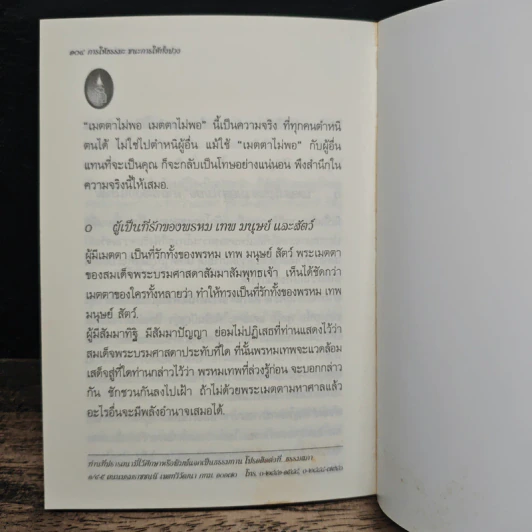 ๑๐๔ การให้ธรรมะ ชนะการให้ทั้งปวง
"เมตตาไม่พอ เมตตาไม่พอ" นี้เป็นความจริง ที่ทุกคนตำหนิ
ตนได้ ไม่ใช่ไปตำหนิผู้อื่น แม้ใช้ "เมตตาไม่พอ" กับผู้อื่น
แทนที่จะเป็นคุณ ก็จะกลับเป็นโทษอย่างแน่นอน พึงสำนึกใน
ความจริงนี้ให้เสมอ.
๐ ผู้เป็นที่รักของพรหม เทพ มนุษย์ และสัตว์
ผู้มีเมตตา เป็นที่รักทั้งของพรหม เทพ มนุษย์ สัตว์ พระเมตตา
ของสมเด็จพระบรมศาสดาสัมมาสัมพุทธเจ้า เห็นได้ชัดกว่า
เมตตาของใครทั้งหลายว่า ทำให้ทรงเป็นที่รักทั้งของพรหม เทพ
มนุษย์ สัตว์.
ผู้มีสัมมาทิฐิ มีสัมมาปัญญา ย่อมไม่ปฏิเสธที่ท่านแสดงไว้ว่า
สมเด็จพระบรมศาสดาประทับที่ใด ที่นั้นพรหมเทพจะแวดล้อม
เสด็จสู่ที่ใดท่านกล่าวไว้ว่า พรหมเทพที่ล่วงรู้ก่อน จะบอกกล่าว
กัน ชักชวนกันลงไปเฝ้า ถ้าไม่ด้วยพระเมตตามหาศาลแล้ว
อะไรอื่นจะมีพลังอำนาจเสมอได้.
ท่านที่ประสงค์ มีไว้ศึกษาหรือพิมพ์แจกเป็นธรรมทาน โปรดติดต่อที่ ธรรมสภา